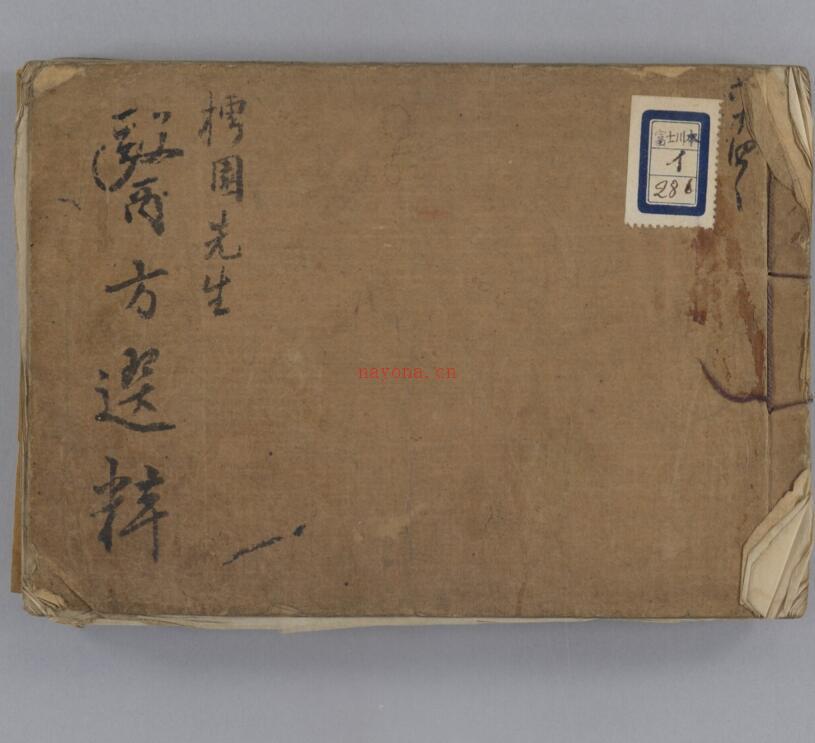 富士川本
イ
286
樗園先生
醫方選粹
一
nayona.cn